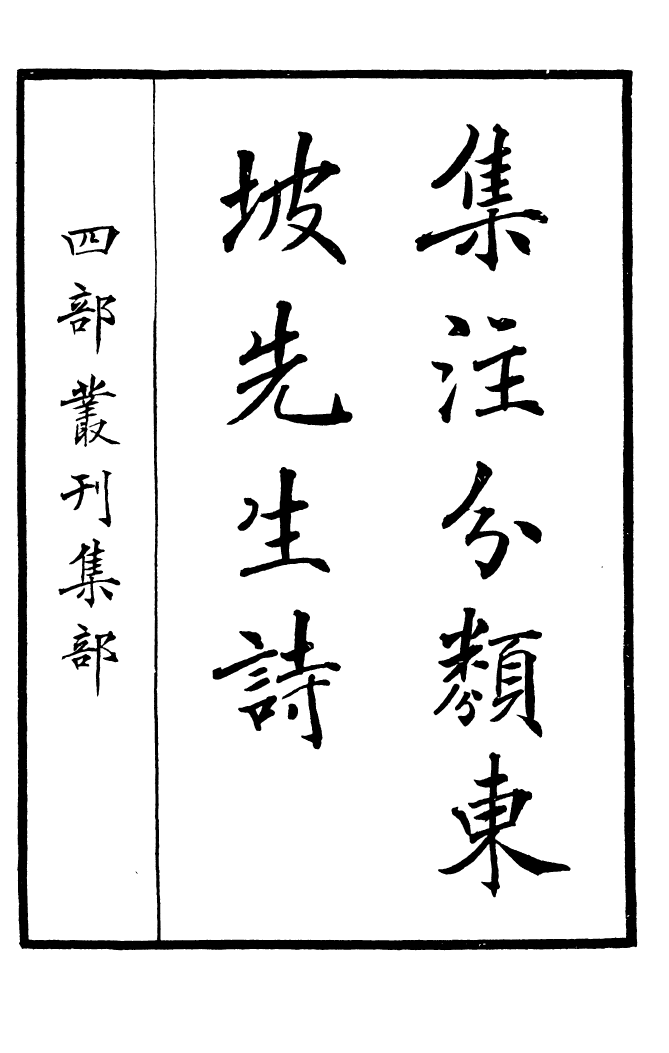 集注分類東
坡先生詩
四部叢刊集部